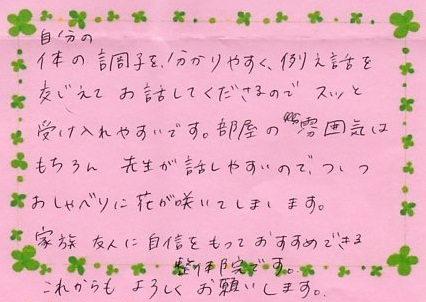 自分の
体の調子を、分かりやすく、例え話を
交じえて お話してくださるので スッと
受け入れやすいです。部屋の雰囲気は
もちろん 先生が話しやすいので、ついつい
おしゃべりに花が咲いてしまします。
家族 友人に自信をもっておすすめできる
整体院です。
これからも よろしく お願いします。